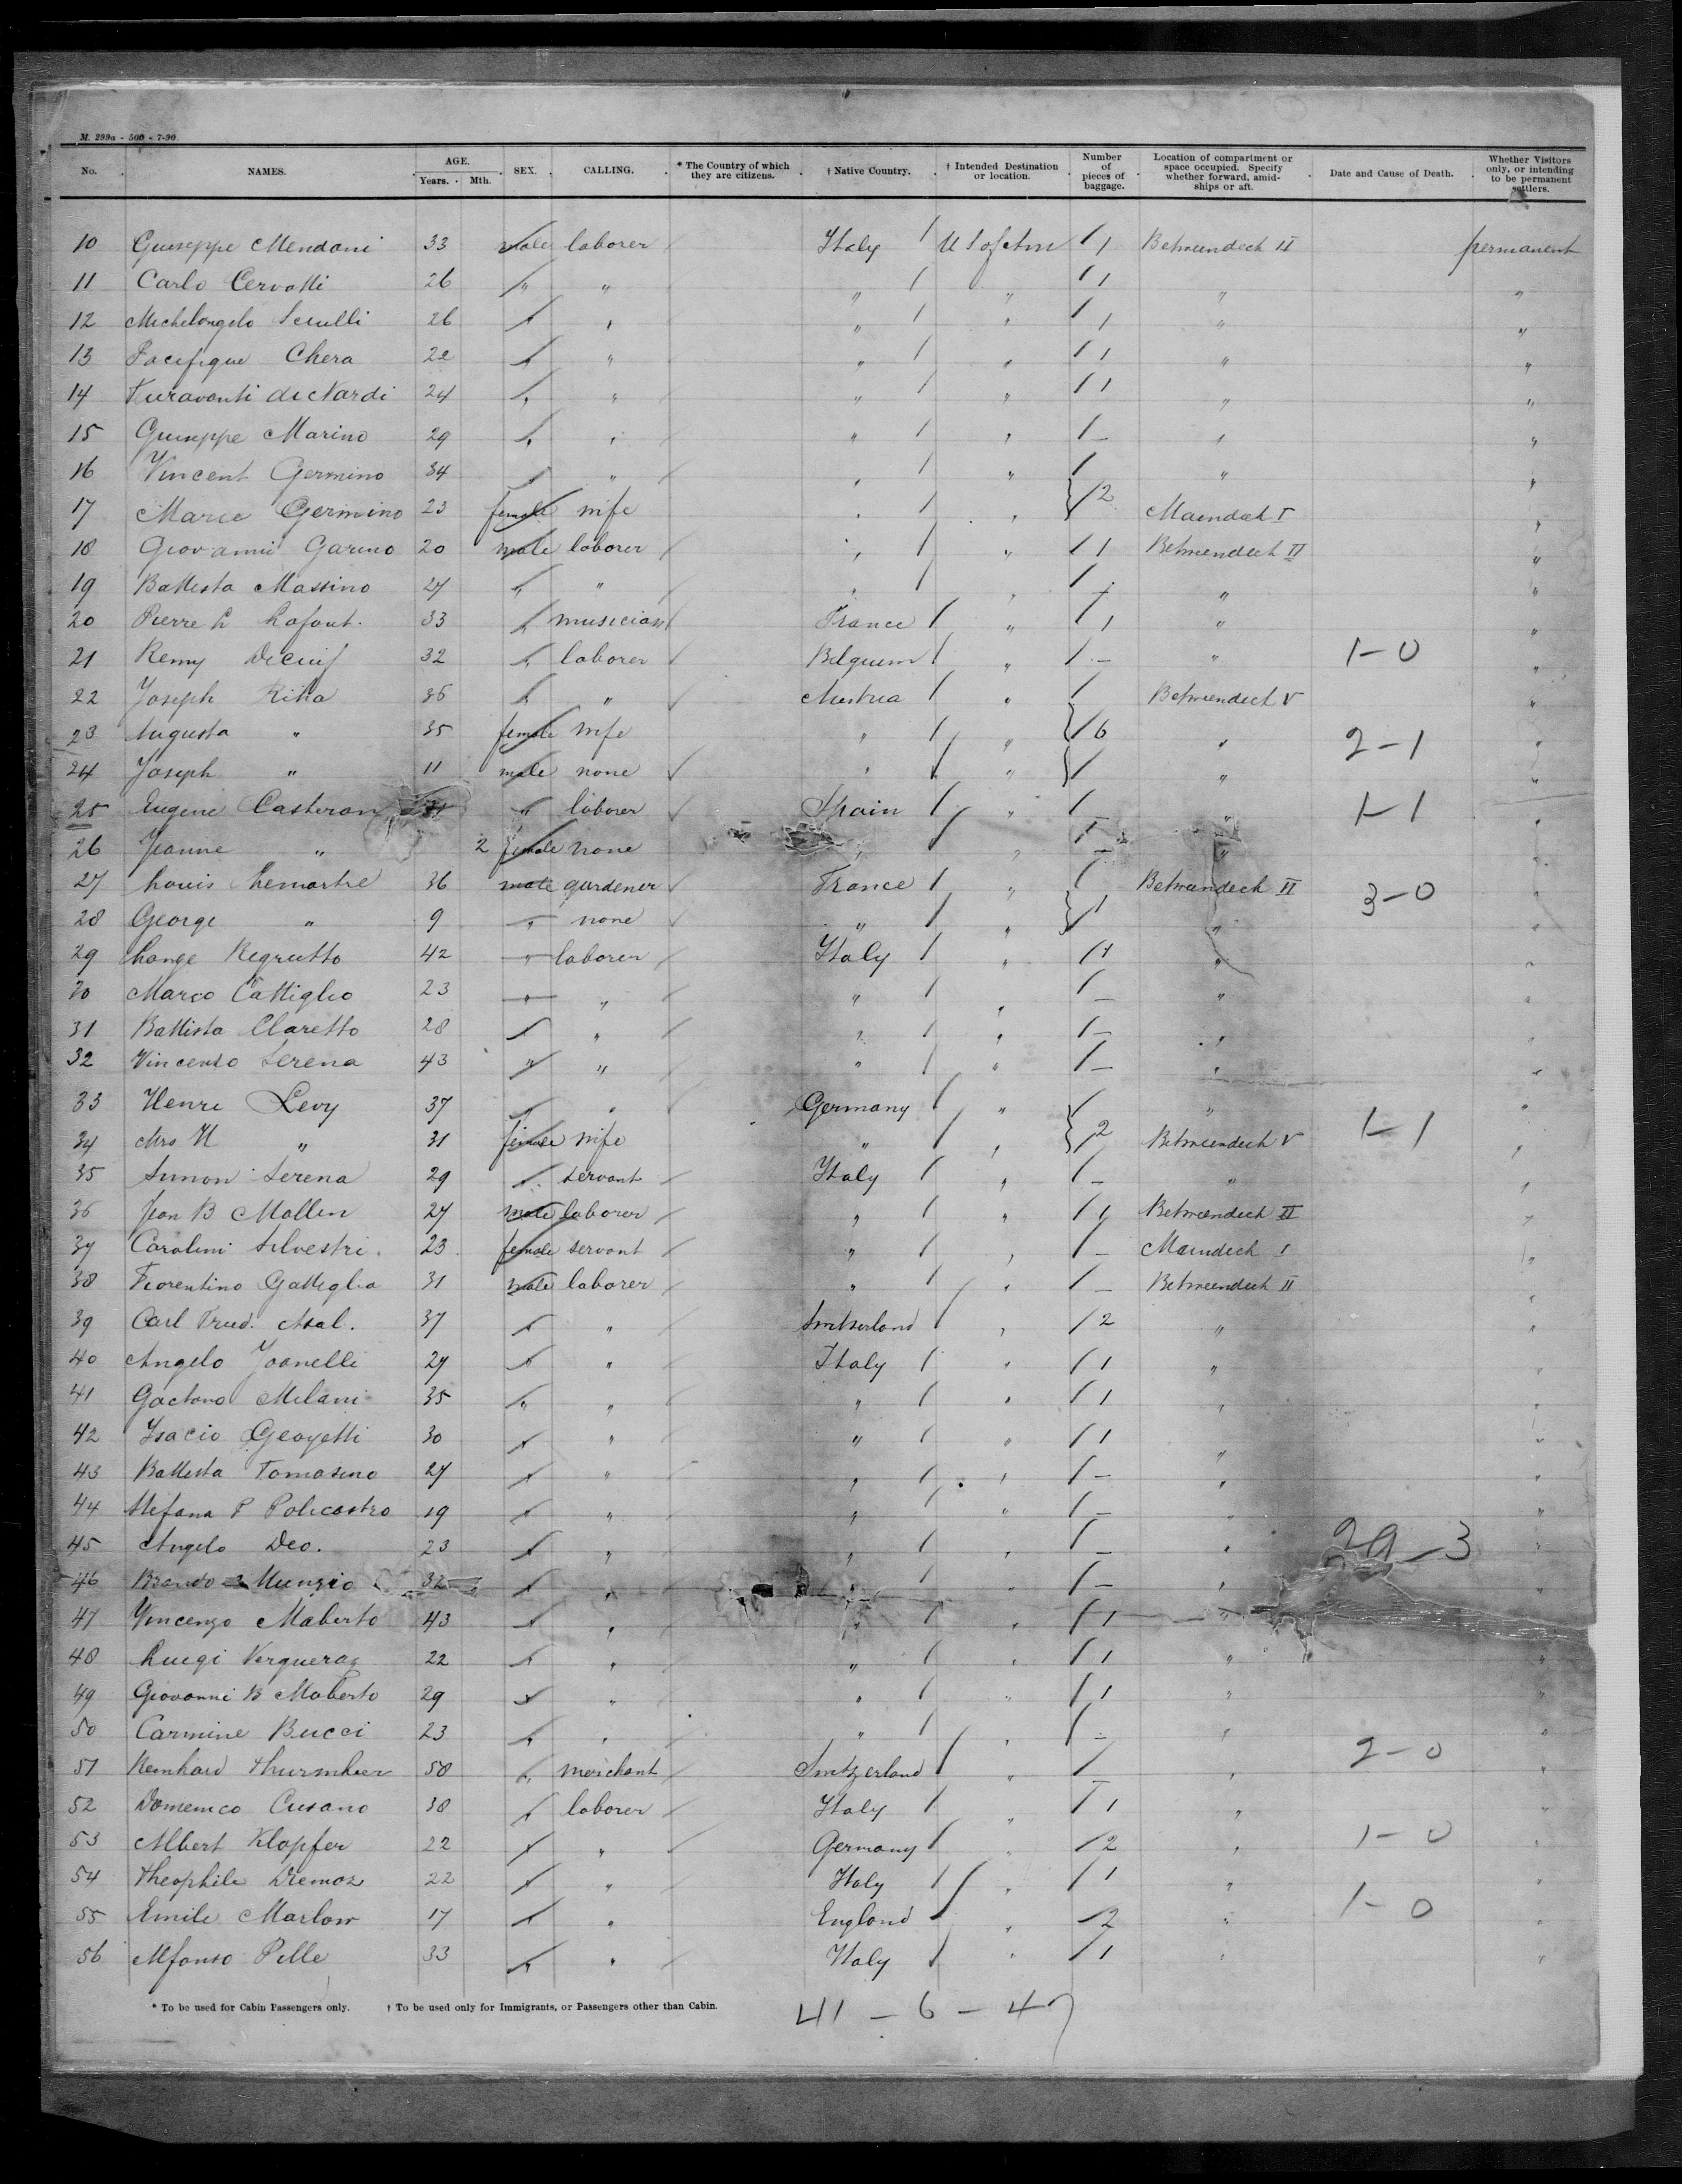 M. 299a - 500 - 7-90.
No. NAMES. AGE. Years. Mth. SEX. CALLING. * The Country of which they are citizens. † Native Country. † Intended Destination or location. Number of pieces of baggage. Location of compartment or space occupied. Specify whether forward, amidships or aft. Date and Cause of Death. Whether Visitors only, or intending to be permanent settlers.
10 Guiseppe Mendoni 33 male laborer Italy U S of Am 1 Betweendeck II permanent
11 Carlo Cervatti 26 " " " " 1 " "
12 Michelangelo 26 " " " " 1 " "
13 Pacifique Chera 22 " " " " 1 " "
14 de Nardi 24 " " " " 1 " "
15 Guiseppe Marino 29 " " " " — " "
16 Vincent Germino 34 " " " " " "
17 Marie Germino 23 female wife " " 2 Maindeck I "
18 Giovanni Garino 20 male laborer " " 1 Betweendeck II "
19 Battista Massino 27 " " " " — " "
20 Pierre L Lafont. 33 " musician France " 1 " "
21 Remy Decuif 32 " laborer Belgium " — " 1-0 "
22 Joseph Rika 36 " " Austria " Betweendeck V "
23 Augusta " 35 female wife " " 6 " 2-1 "
24 Joseph " 11 male none " " " "
25 Eugene Casteran " laborer Spain " — " 1-1 "
26 Jeanne " 2 female none " " — " "
27 Louis Lemartre 36 male gardener France " Betweendeck II 3-0 "
28 George " 9 " none " " 1 " "
29 Regrutto 42 " laborer Italy " 1 " "
30 Marco Cattiglio 23 " " " " — " "
31 Battista Claretto 28 " " " " — " "
32 Vincenzo Serena 43 " " " " — " "
33 Henri Levy 37 " " Germany " " "
34 Mrs H " 31 female wife " " 2 Betweendeck V 1-1 "
35 Simon Serena 29 " servant Italy " — " "
36 Jean B Mallen 27 male laborer " " 1 Betweendeck II "
37 Carolini Silvestri 23 female servant " " — Maindeck I "
38 Fiorentino Gattiglia 31 male laborer " " — Betweendeck II "
39 Carl Fried. Asal. 37 " " Switserland " 2 " "
40 Angelo Joanelli 27 " " Italy " 1 " "
41 Gaetano Milani 35 " " " " 1 " "
42 Isacio Geoyetti 30 " " " " 1 " "
43 Battista Tomasino 27 " " " " — " "
44 Stefana P Policastro 19 " " " " — " "
45 Angelo Deo. 23 " " " " — " 29-3 "
46 Munzio 32 " " " " — " "
47 Vincenzo Maberto 43 " " " " 1 " "
48 Luigi Verguera 22 " " " " 1 " "
49 Giovanni B Maberto 29 " " " " 1 " "
50 Carmine Bucci 23 " " " " — " "
51 Reinhard 58 " merchant Switzerland " — " 2-0 "
52 Domenico Cusano 38 " laborer Italy " 1 " "
53 Albert Klopfer 22 " " Germany " 2 " 1-0 "
54 Theophile Dremoz 22 " " Italy " 1 " "
55 Emile Marlow 17 " " England " 2 " 1-0 "
56 Alfonso Pelle 33 " " Italy " 1 " "
* To be used for Cabin Passengers only. † To be used only for Immigrants, or Passengers other than Cabin.
41 - 6 - 47